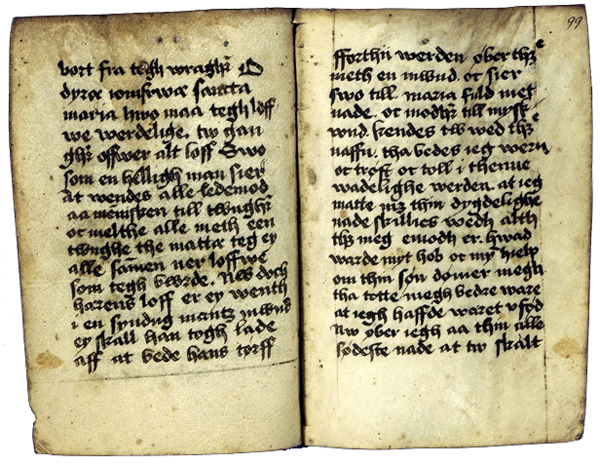 bort fra tegh wraghr O
dyræ iomfrwæ sancta
maria hwo maa tegh loff
we werdelige. tw gan
ghr offwer alt loff Swo
som en helligh man sier
at wendes alle ledemod
aa mēnisken till twnghr
oc melthe alle meth een
twnghe the mattæ teg ey
alle samen ner loffwe
som tegh bwrde. Nw doch
harens loff er ey wenth
i en syndug mantz mwnd
ey skall han togh lade
aff at bede hans torff
99
fforthii werden ober thz
meth en mwnd. oc sier
swo till maria fuld meg
nade. oc modhr till mysk
wnd. kendes tw wed thz
naffn. tha bedes ieg wern
oc trøst oc toll i thenne
wadelighe werden. at ieg
matte mz thin dygdelighe
nade skillies wedh alth
thz meg emodh er. hwad
warde myt hob oc my hielp
om thin søn domer megh
tha totte megh bedre ware
at iegh haffde waret vfød
Nw ober iegh aa thin alle
sødeste nade at tw skalt